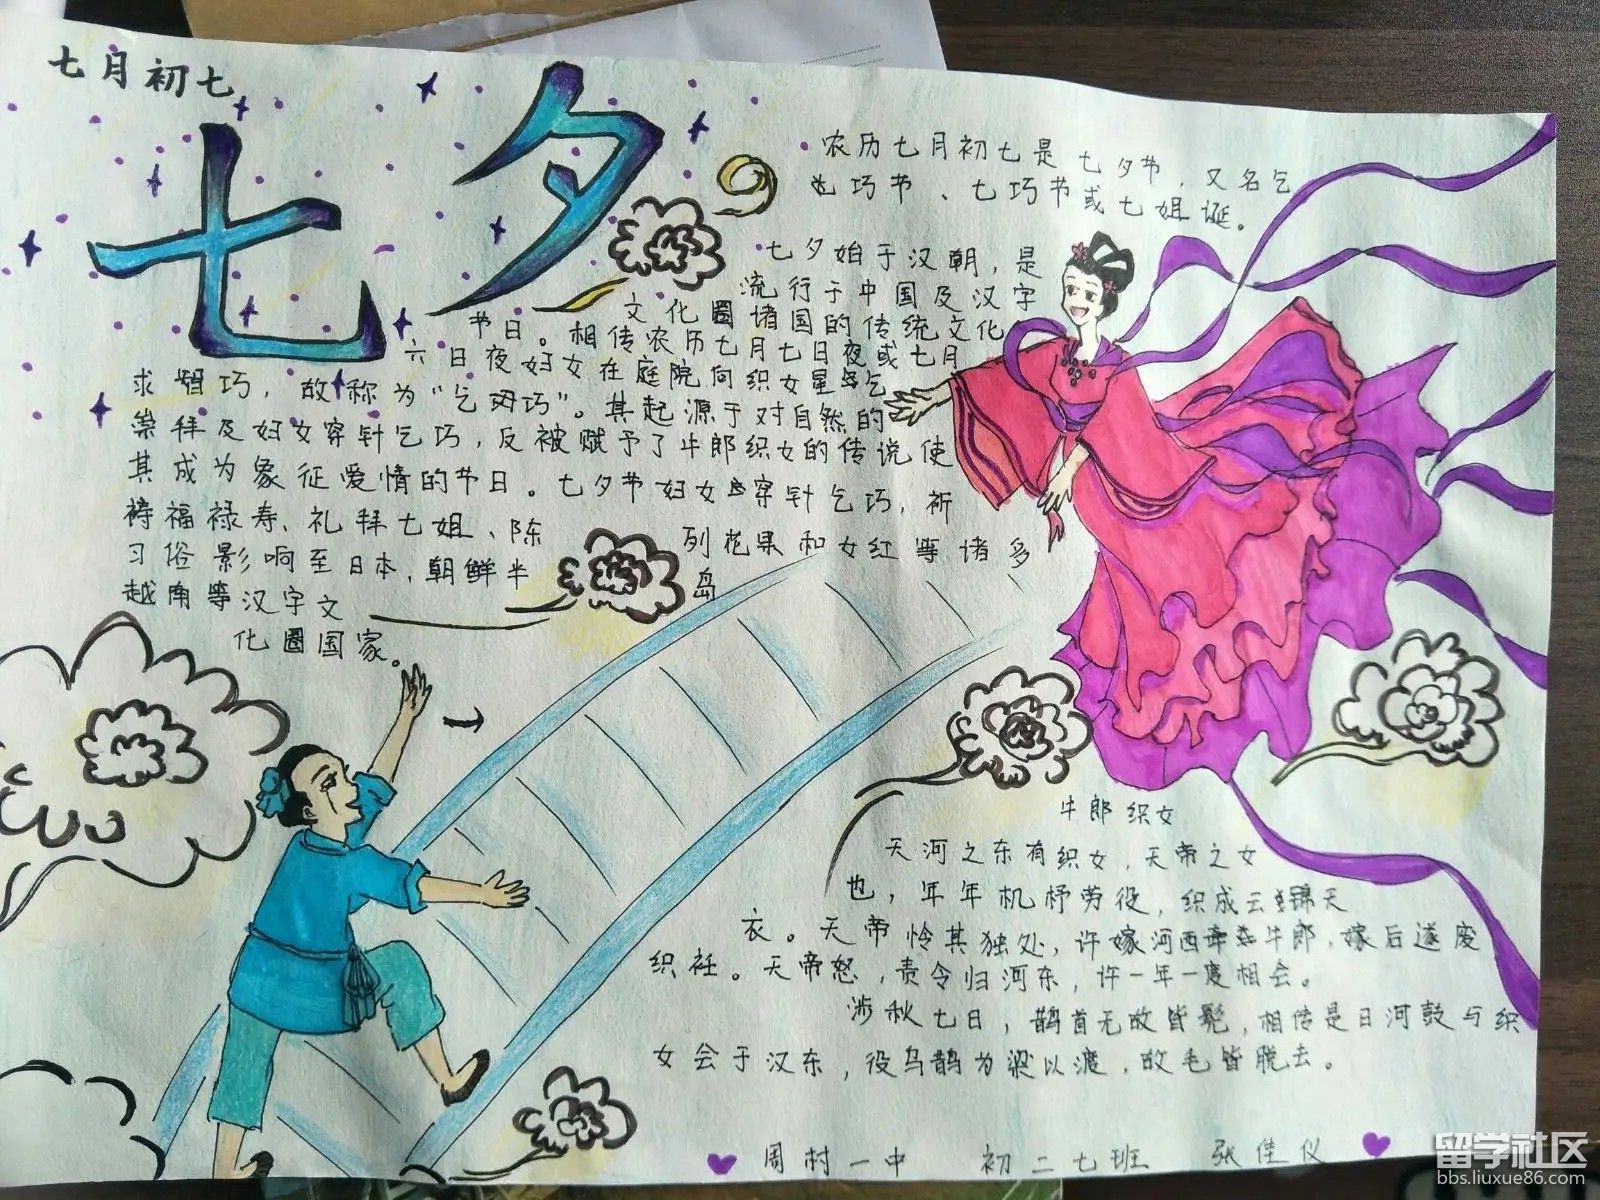 七月初七
七夕
农历七月初七是七夕节，又名乞
巧节、七巧节或七姐诞。
七夕始于汉朝，是
流行于中国及汉字
文化圈诸国的传统文化
节日。相传农历七月七日夜或七月
六日夜妇女在庭院向织女星乞
求智巧，故称为“乞巧”。其起源于对自然的
崇拜及妇女穿针乞巧，反被赋予了牛郎织女的传说使
其成为象征爱情的节日。七夕节妇女穿针乞巧，祈
祷福禄寿、礼拜七姐、陈列花果和女红等诸多
习俗影响至日本、朝鲜半岛
越南等汉字文
化圈国家。
牛郎织女
天河之东有织女，天帝之女
也，年年机杼劳役，织成云锦天
衣。天帝怜其独处，许嫁河西牵牛郎，嫁后遂废
织衽。天帝怒，责令归河东，许一年一度相会。
涉秋七日，鹊首无故皆髡，相传是日河鼓与织
女会于汉东，役乌鹊为梁以渡，故毛皆脱去。
周村一中 初二七班 张佳仪
留学社区
bbs.liuxue86.com